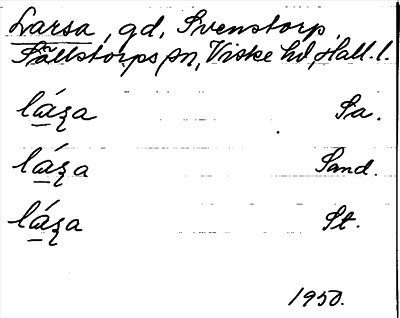 Larsa, gd, Svenstorp,
Sällstorps sn, Viske hd, Hall. l.
láʒa Sa.
láʒa Sand.
láʒa St.
1950.